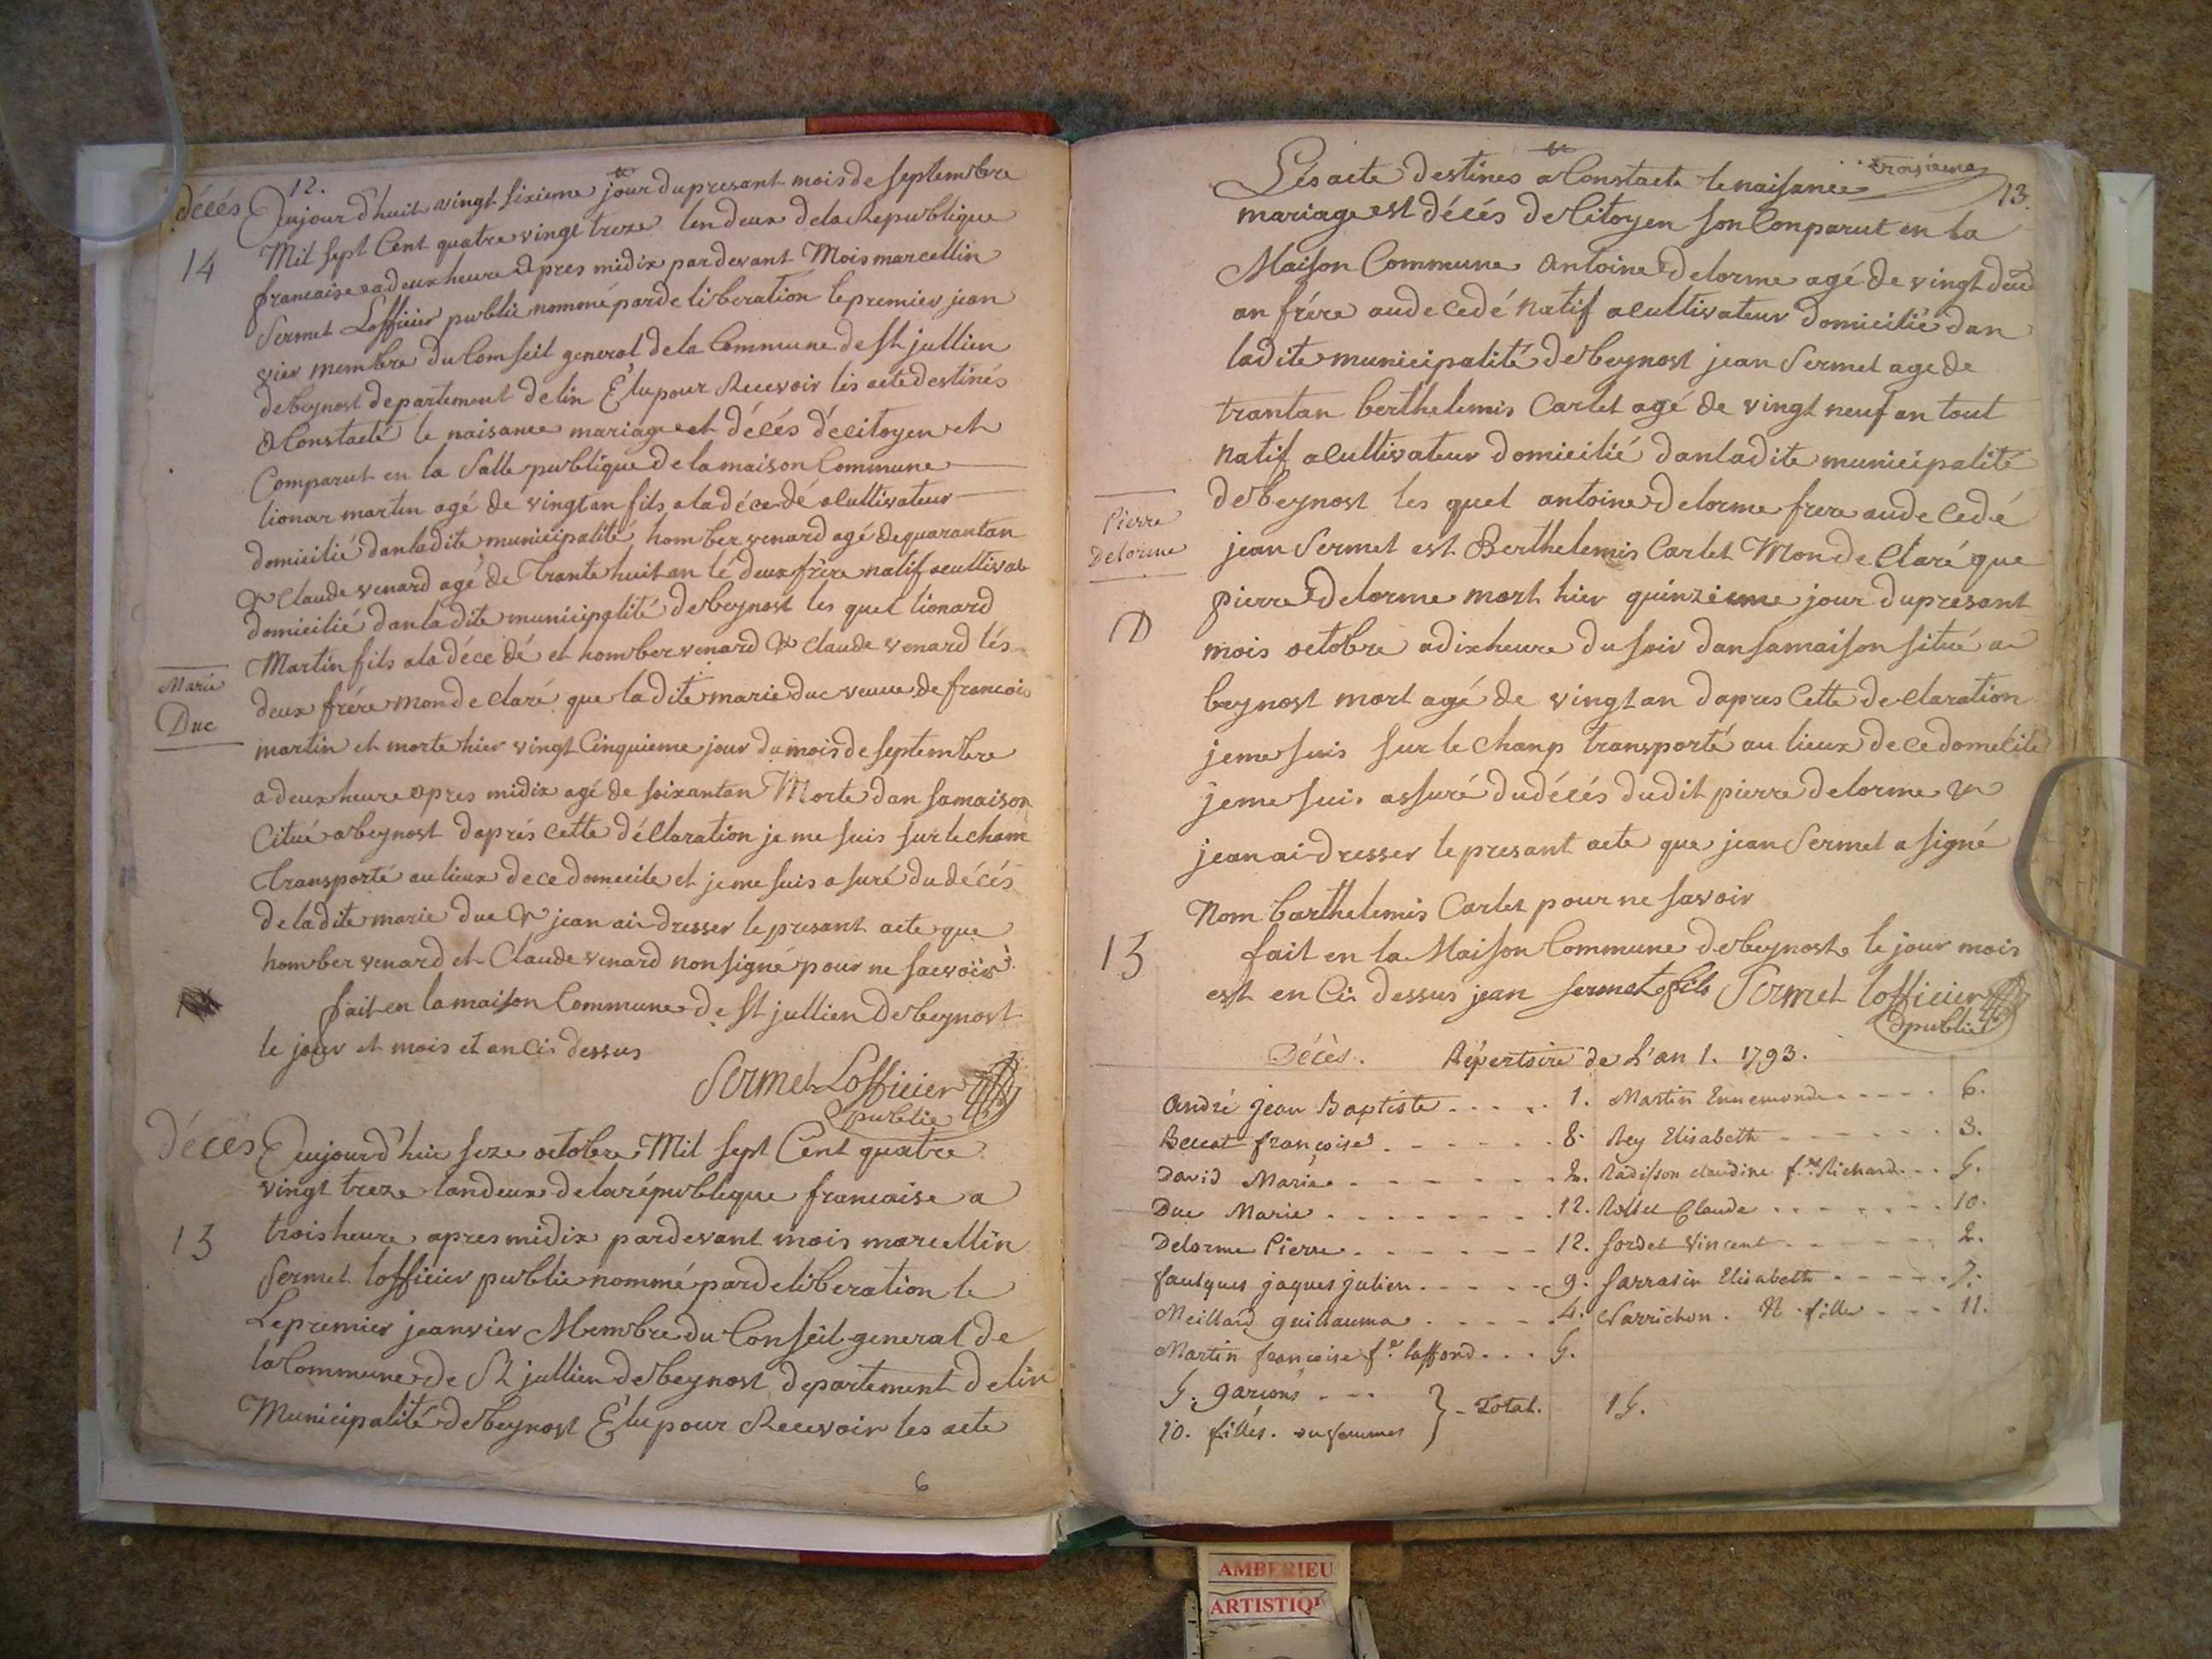 12.
décés Aujourd'huit vingt sixieme jour dupresant mois de septembre
14 Mil sept Cent quatre vingt treze len deux dela Republique
francaise a deux heure apres midix pardevant Mois marcellin
Sermet Lofficier public nommé parde liberation lepremier jean
vier membre du Comseil general dela Commune de St jullien
debeynost departement delin Élu pour Recevoir lis acte destinés
a Constaeté le naisance mariage et décés décitoyen et
Comparut en la Salle publique de la maison Commune
lionar martin agé de vingt an fils ala décedé acultivateur
domicilié danladite municipalité homber venard agé de quarantan
& Claude venard agé de Trante huit an lé deux frère natif acultivat
domicilié danla dite municipalité debeynost les quel lionard
Martin fils ala décedé et homber venard & Claude venard lés
Marie
Duc
deux frére monde claré que la dite marie duc veuve de francois
martin et morte hier vingt Cinquieme jour du mois de septembre
a deux heure apres midix agé de soixantan Morte dan samaison
Citué abeynost daprés cette déClaration je me suis sur le cham
transporté au lieux dece domecile et jeme suis a suré du décés
deladite marie duc & jean ai dresser le presant acte que
homber venard et Claude venard non signé pour ne saevoir
fait en la maison Commune de St jullien Debeynost
le jour et mois et an Ci dessus
Sermet Lofficier
public
décés Aujourd'hui seze octobre Mil sept Cent quatre
vingt treze landeux delarépublique francaise a
13 trois heure apres midix pardevant mois marcellin
Sermet lofficier public nommé pardeliberation le
Lepremier jeanvier Membre du Conseil general de
la Commune de St jullien debeynost departement delin
Municipalité debeynost Élu pour Recevoir les acte
6
troisieme
13.
Lés acte destinés a Constacte le naisance
mariage est décés de Citoyen son Conparut en la
Maison Commune antoine delorme agé de vingt deux
an frére aude cedé natif acultivateur domicilié dan
ladite municipalité debeynost jean Sermet age de
trantan berthelemis Carlet agé de vingt neuf an tout
natif acultivateur domicilié danladite municipalité
debeynost les quel antoine delorme frere aude cedé
Pierre
Delorme
jean Sermet est Berthelemis Carlet Monde Claré que
pierre delorme mort hier quinzieme jour dupresant
D
mois octobre adix heure du soir dansamaison situé a
beynost mort agé de vingt an dapres Cette de claration
jeme suis sur le chanp transporté au lieux dece domecile
jeme suis assuré dudécés dudit pierre delorme &
jean ai dresser le presant acte que jean Sermet a signé
Nom barthelemis Carlet pour ne savoir
13 fait en la Maison Commune debeynost le jour mois
est en Ci dessus jean sermet fils Sermet lofficier
public
Décès. Répertoire de L'an 1. 1793.
André jean Baptiste . . . . . 1. Martin Ennemonde . . . . . 6.
françoise . . . . . . 8. Rey Elisabeth . . . . . . 3.
David Marie . . . . . . . 2. Radisson claudine f.e Richard . . . 5.
Duc Marie . . . . . . . . 12. Claude . . . . . . . 10.
Delorme Pierre . . . . . . 12. Sordet Vincent . . . . . . 2.
faulques jaques julien . . . . . 9. Sarrasin Elisabeth . . . . . 7.
Meillard guillaume . . . . . 4. Varrichon . N . fille . . . . 11.
Martin françoise f.e laffond . . . 5.
5. garçons . . .
} - Total. 15.
10. filles. ou femmes
AMBERIEU
ARTISTIQ